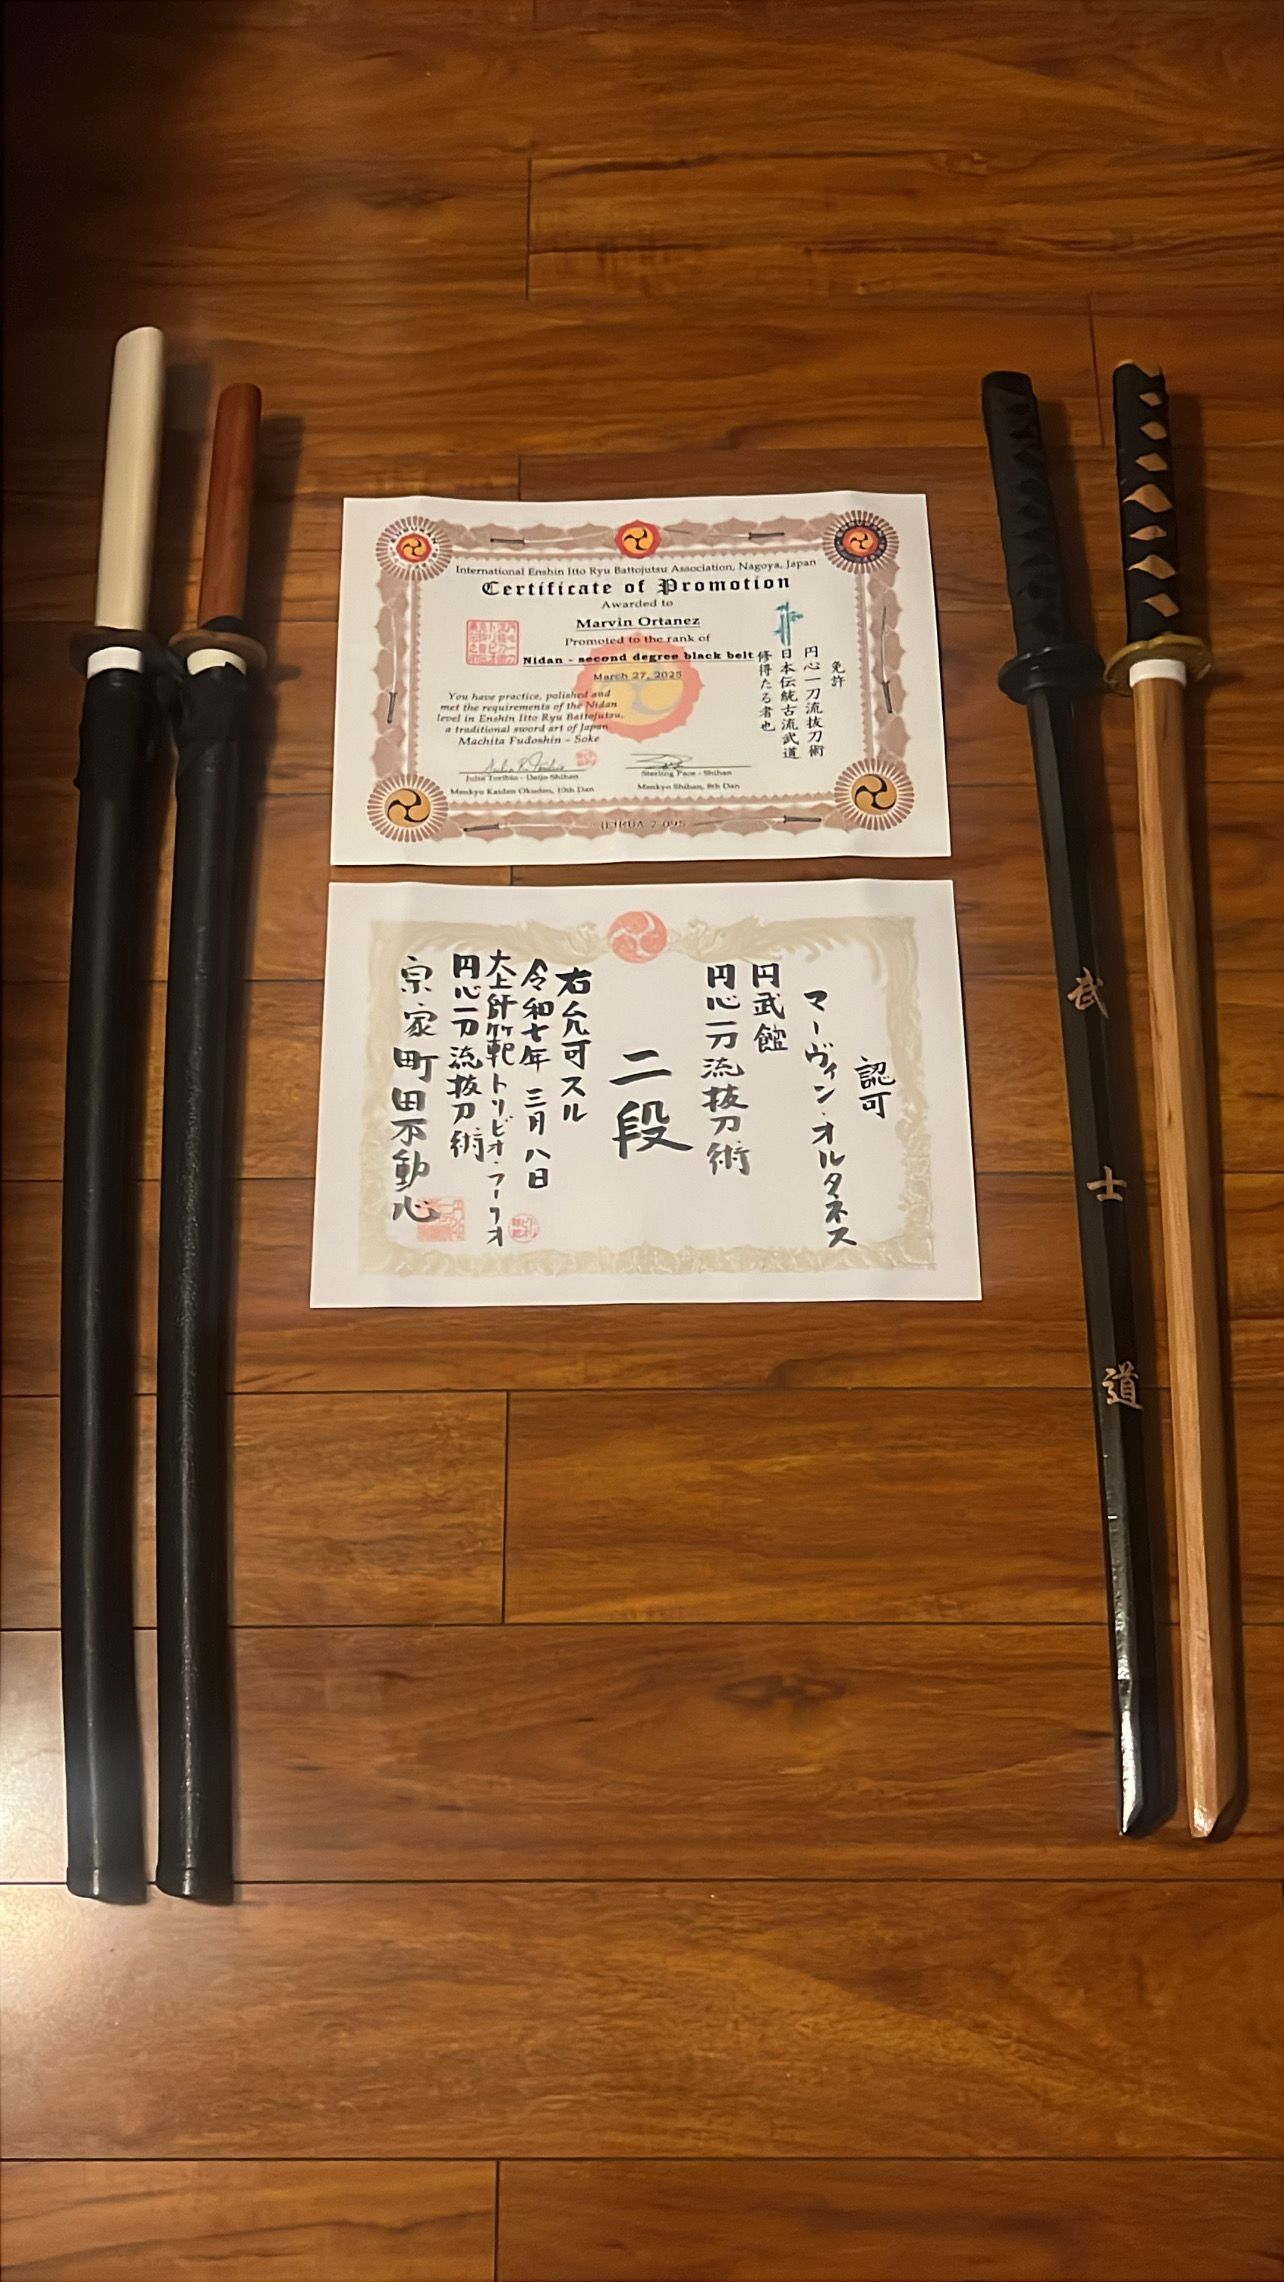 International Enshin Itto Ryu Battojutsu Association, Nagoya, Japan
Certificate of Promotion
Awarded to
Marvin Ortanez
Promoted to the rank of
Nidan - second degree black belt
March 27, 2025
You have practice, polished and
met the requirements of the Nidan
level in Enshin Itto Ryu Battojutsu,
a traditional sword art of Japan
Machita Fudoshin - Soke
免許
円心一刀流抜刀術
日本伝統古流武道
修得たる者也
Julio Toribio - Daijo Shihan
Menkyo Kaiden Okuden, 10th Dan
Sterling Pace - Shihan
Menkyo Shihan, 8th Dan
IEIRBA 2-095
認可
マーヴィン・オルタネス
円武館
円心一刀流抜刀術
二段
右允可スル
令和七年 三月八日
大上師範 トリビオ・フーリオ
円心一刀流抜刀術
宗家町田不動心
武士道